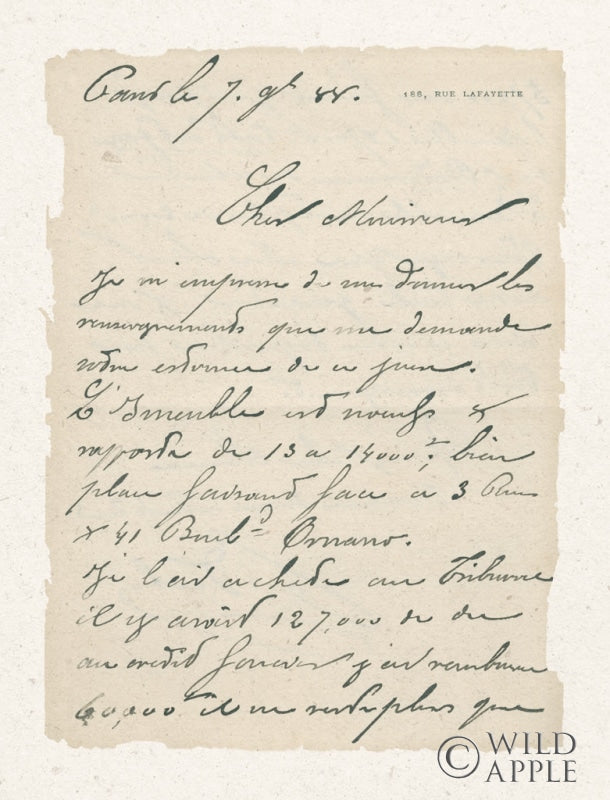 Paris le 7. 9bre 88.
188, RUE LAFAYETTE
Cher Monsieur
Je m'empresse de vous donner les
renseignements que me demande
votre estimée de ce jour.
L'Immeuble est neuf &
rapporte de 13 a 14000 f; bien
placé faisant face a 3 Rues
& 41 Boulд Ornano.
Je l'ai acheté au Tribunal
il y avait 127,000 de du
au crédit foncier j'ai remboursé
60,000 f il ne reste plus que
© WILD
APPLE